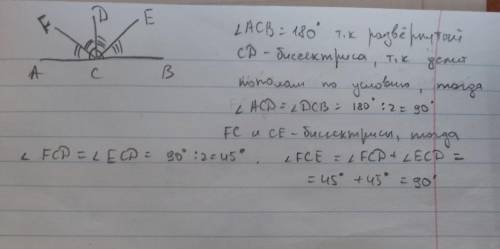 F D E
A C B
∠ACB = 180° т.к развёрнутый
CD - биссектриса, т.к делит
пополам по условию, тогда
∠ACD = ∠DCB = 180° : 2 = 90°
FC и CE - биссектрисы, тогда
∠FCD = ∠ECD = 90° : 2 = 45°. ∠FCE = ∠FCD + ∠ECD =
= 45° + 45° = 90°